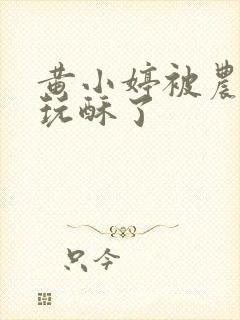 黄小婷被農
玩酥了
只今